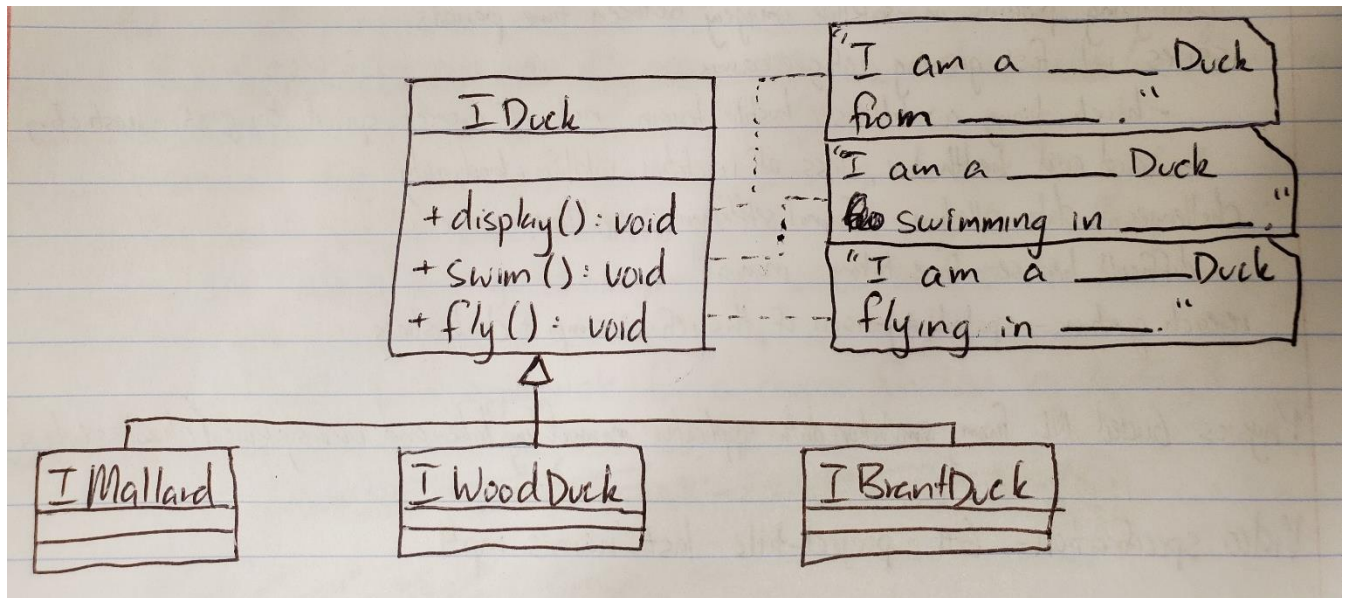 IDuck
+ display() : void
+ swim() : void
+ fly() : void
"I am a ______ Duck
from ________ ."
"I am a ______ Duck
swimming in ________ ."
"I am a ______ Duck
flying in _____."
IMallard
IWoodDuck
IBrantDuck